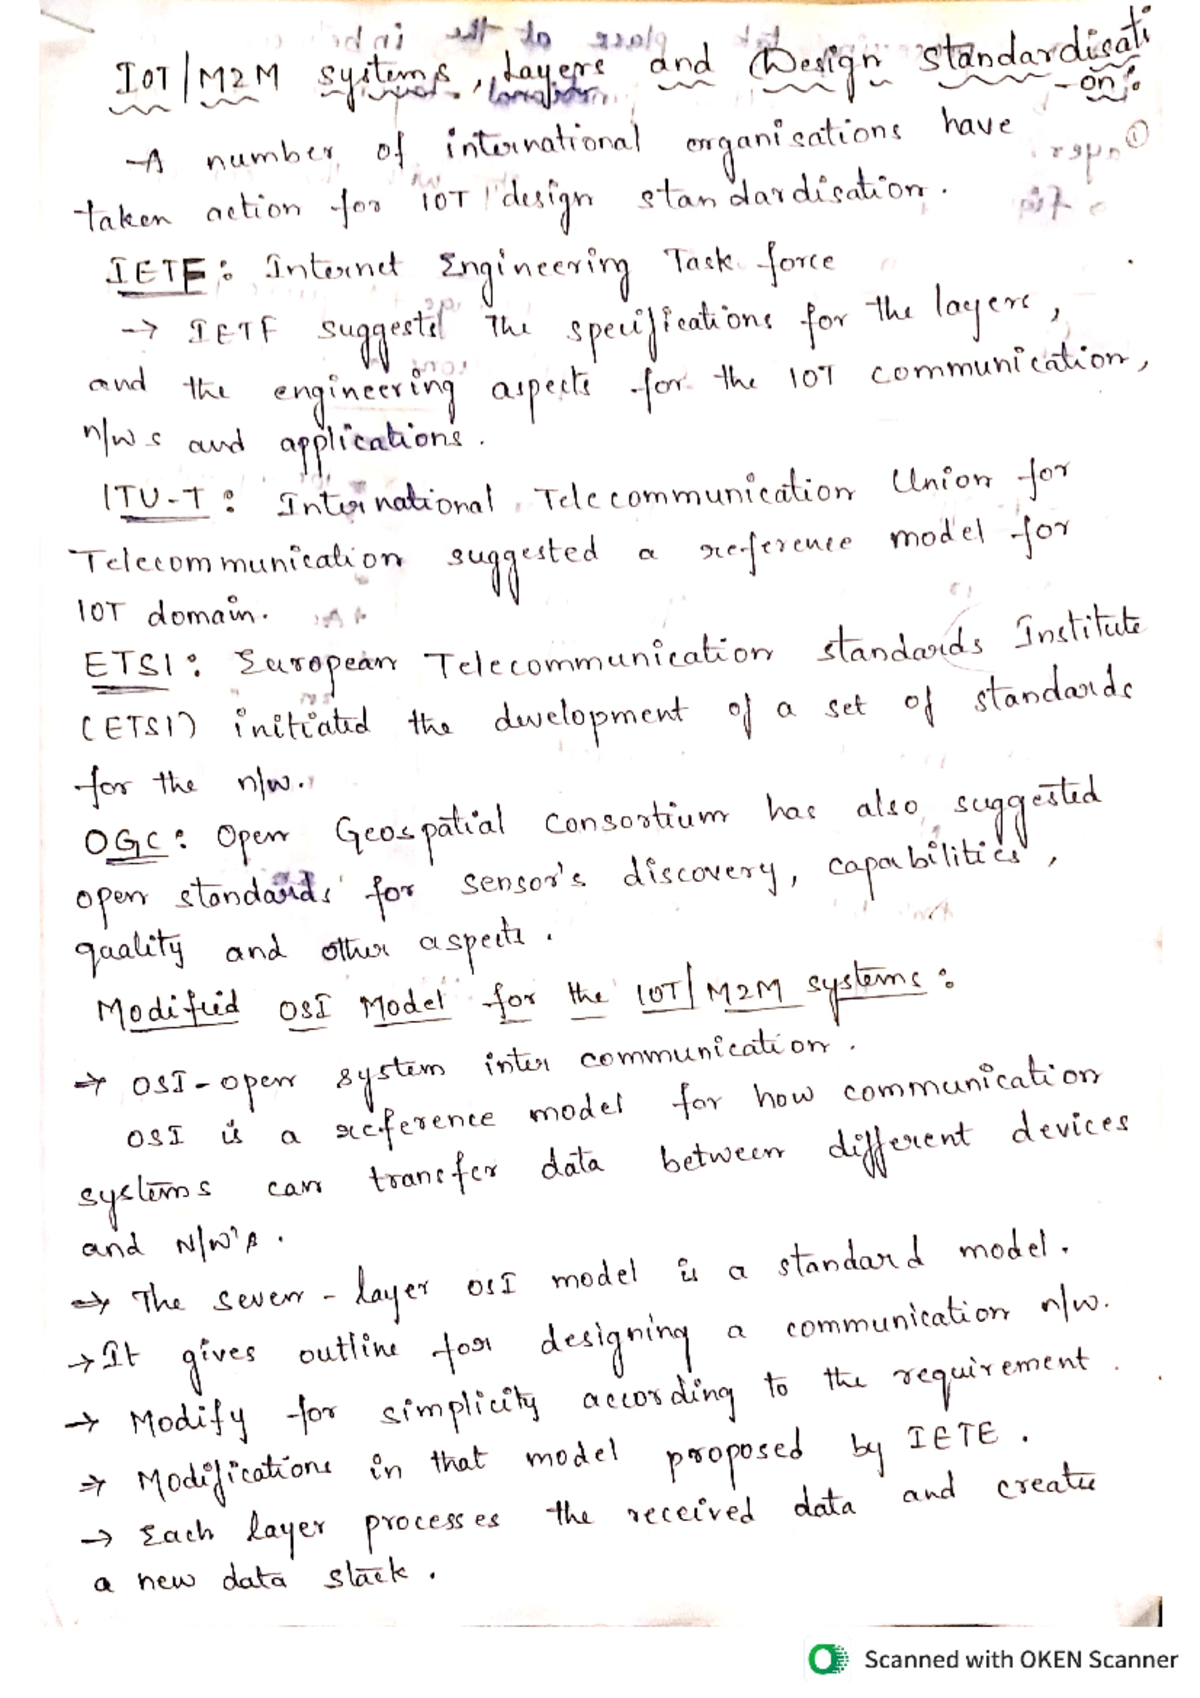 IOT/M2M systems, Layers and Design standardisati
-on:
A number of international organisations have
taken action for IOT design standardisation.
IETF: Internet Engineering Task force
→ IETF suggests the specifications for the layers,
and the engineering aspects for the IOT communication,
n/w s and applications.
ITU-T: International Telecommunication Union for
Telecommunication suggested a reference model for
IOT domain.
ETSI: European Telecommunication standards Institute
(ETSI) initiated the development of a set of standards
for the n/w.
OGC: Open Geospatial Consortium has also suggested
open standards for sensor's discovery, capabilities,
quality and other aspects.
Modified OSI Model for the IOT/M2M systems:
→ OSI-open system inter communication.
OSI is a reference model for how communication
systems can transfer data between different devices
and N/W's.
→ The seven-layer OSI model is a standard model.
→ It gives outline for designing a communication n/w.
→ Modify for simplicity according to the requirement.
→ Modifications in that model proposed by IETE.
→ Each layer processes the received data and create
a new data stack.
Scanned with OKEN Scanner